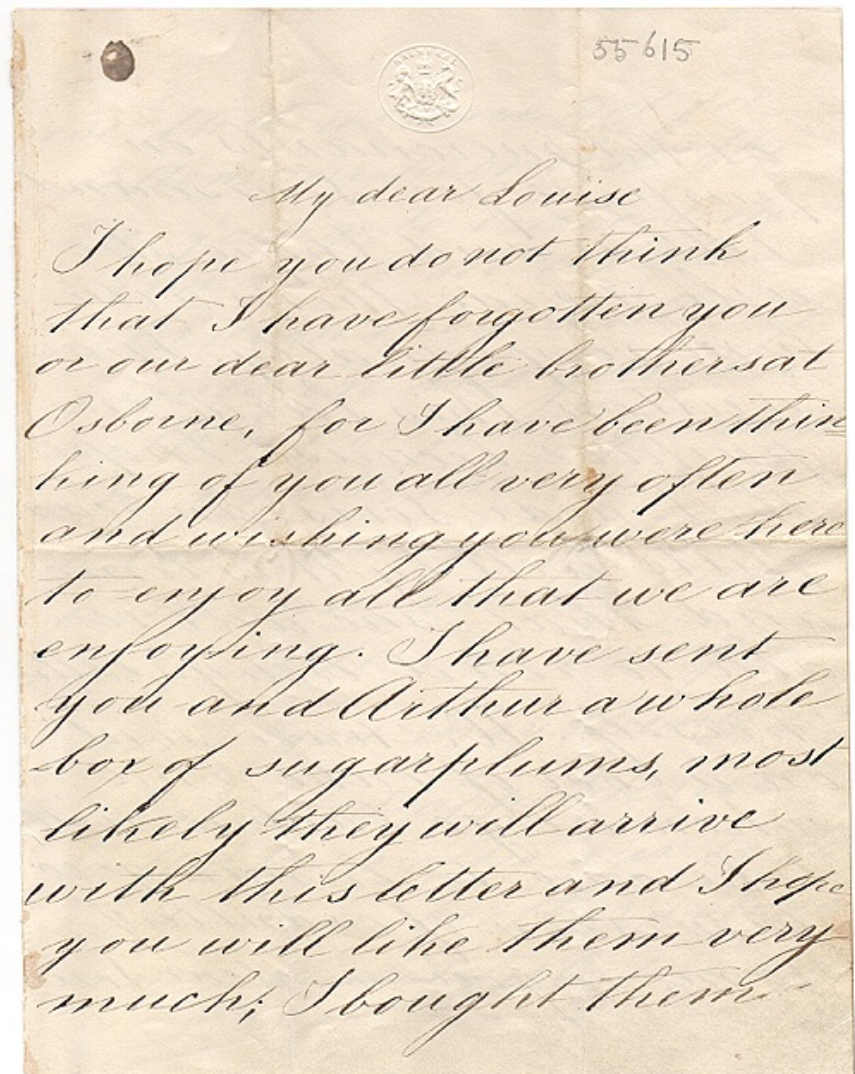 55615
BALMORAL
My dear Louise
I hope you do not think
that I have forgotten you
or our dear little brothers at
Osborne, for I have been thin=
king of you all very often
and wishing you were here
to enjoy all that we are
enjoying. I have sent
you and Arthur a whole
box of sugarplums, most
likely they will arrive
with this letter and I hope
you will like them very
much; I bought them